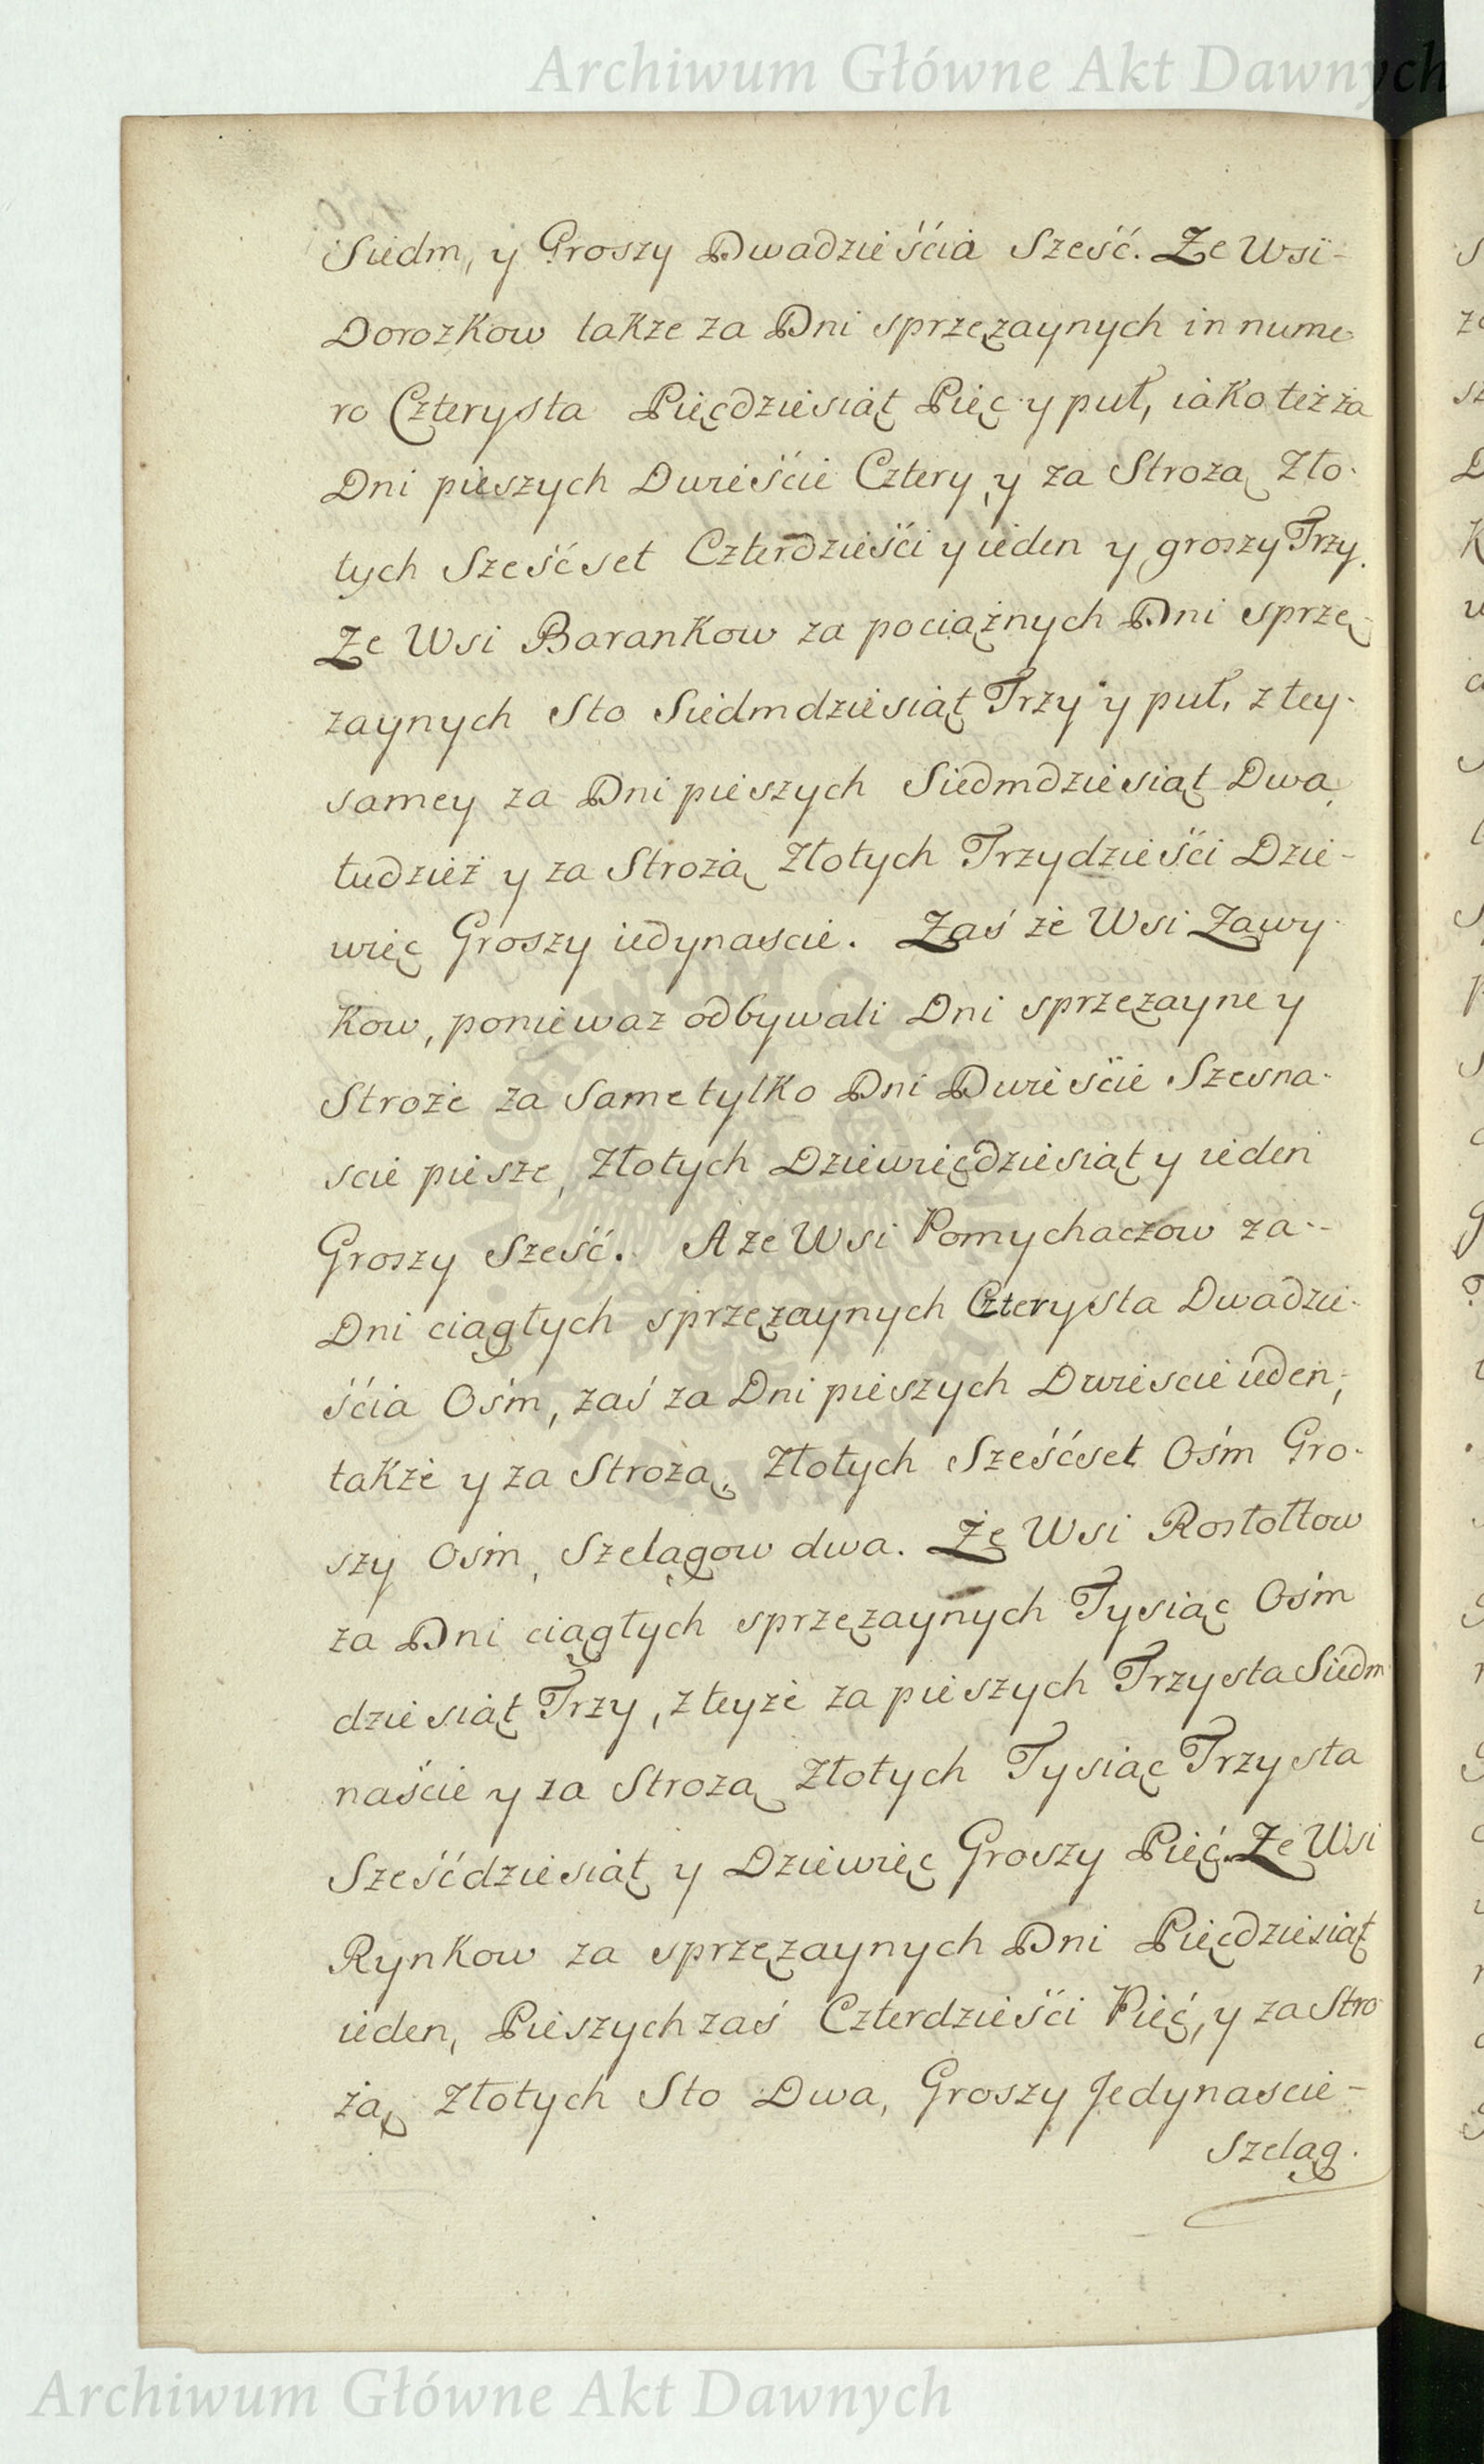 Archiwum Główne Akt Dawnych
Siedm, y Groszy Dwadzieścia Sześć. Ze Wsi-
Dorozkow takze za Dni sprzężaynych in nume
ro Czterysta Pięćdziesiąt Pięc y puł, iako też za
Dni pieszych Dwieście Cztery, y za Strożą Zło-
tych Sześćset Czterdzieści y ieden y groszy Trzy.
Ze Wsi Barankow za pociążnych Dni sprzę-
zaynych Sto Siedmdziesiąt Trzy y puł, z tey-
samey za Dni pieszych Siedmdziesiąt Dwa,
tudzież y za Strożą Złotych Trzydzieści Dzie-
więc Groszy iedynascie. Zaś ze Wsi Zawy-
kow, poniewaz odbywali Dni sprzęzayne y
Stroże za Same tylko Dni Dwieście Szesna-
scie piesze, Złotych Dziewięćdziesiąt y ieden
Groszy Sześć. A ze Wsi Pomychaczow za--
Dni ciągłych sprzęzaynych Czterysta Dwadzie-
ścia Ośm, zaś za Dni pieszych Dwiescie ieden,
także y za Strożą, Złotych Sześćset Ośm Gro-
szy Ośm, Szelągow dwa. Ze Wsi Rostołtow
za Dni ciągłych sprzęzaynych Tysiąc Ośm
dziesiąt Trzy, z teyże za pieszych Trzysta Siedm
naście y za Strozą Złotych Tysiąc Trzysta
Sześćdziesiąt y Dziewięc Groszy Pięć. Ze Wsi
Rynkow za sprzęzaynych Dni Pięćdziesiąt
ieden, Pieszych zaś Czterdzieści Pięć, y za Stro-
żą, Złotych Sto Dwa, Groszy Jedynascie-
Szeląg.
Archiwum Główne Akt Dawnych